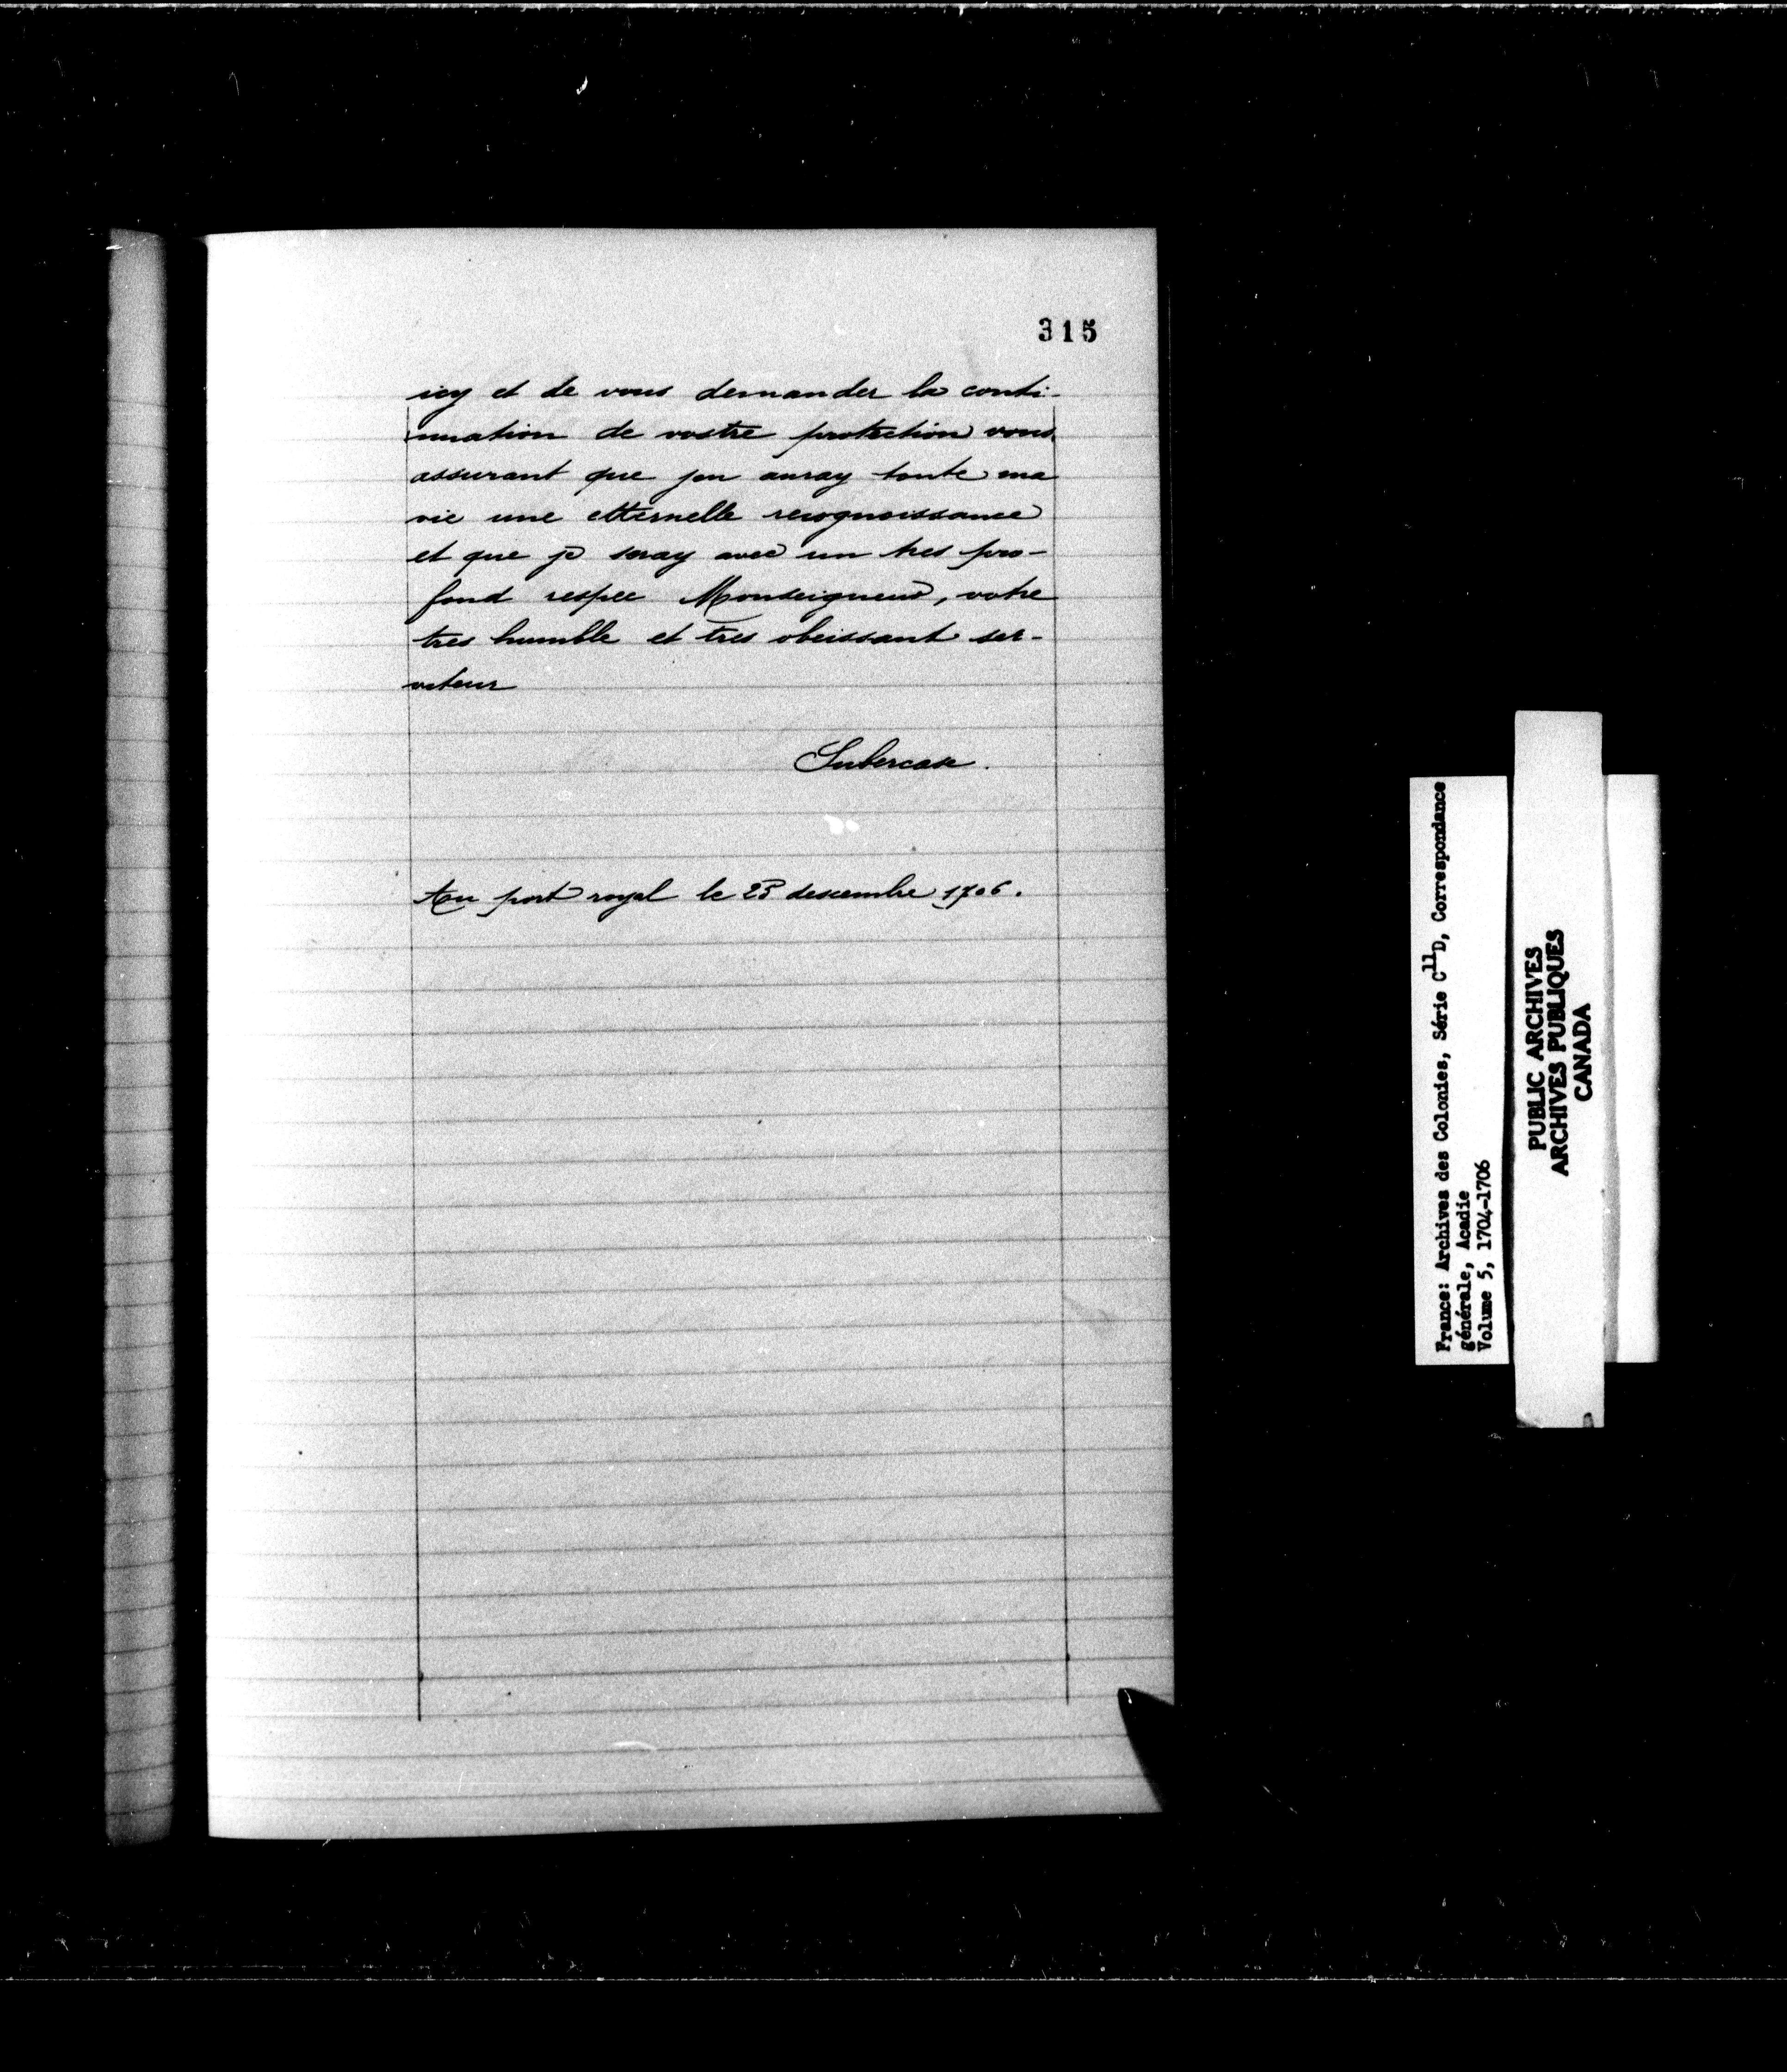 315
icy et de vous demander la conti-
nuation de vostre protection vous
assurant que jen auray toute ma
vie une etternelle recognoissance
et que je seray avec un tres pro-
fond respec Monseigneur, votre
tres humble et tres obeissant ser-
viteur
Subercase.
Au port royal le desembre 1706.
France: Archives des Colonies, Série C11D, Correspondance
générale, Acadie
Volume 5, 1704-1706
PUBLIC ARCHIVES
ARCHIVES PUBLIQUES
CANADA